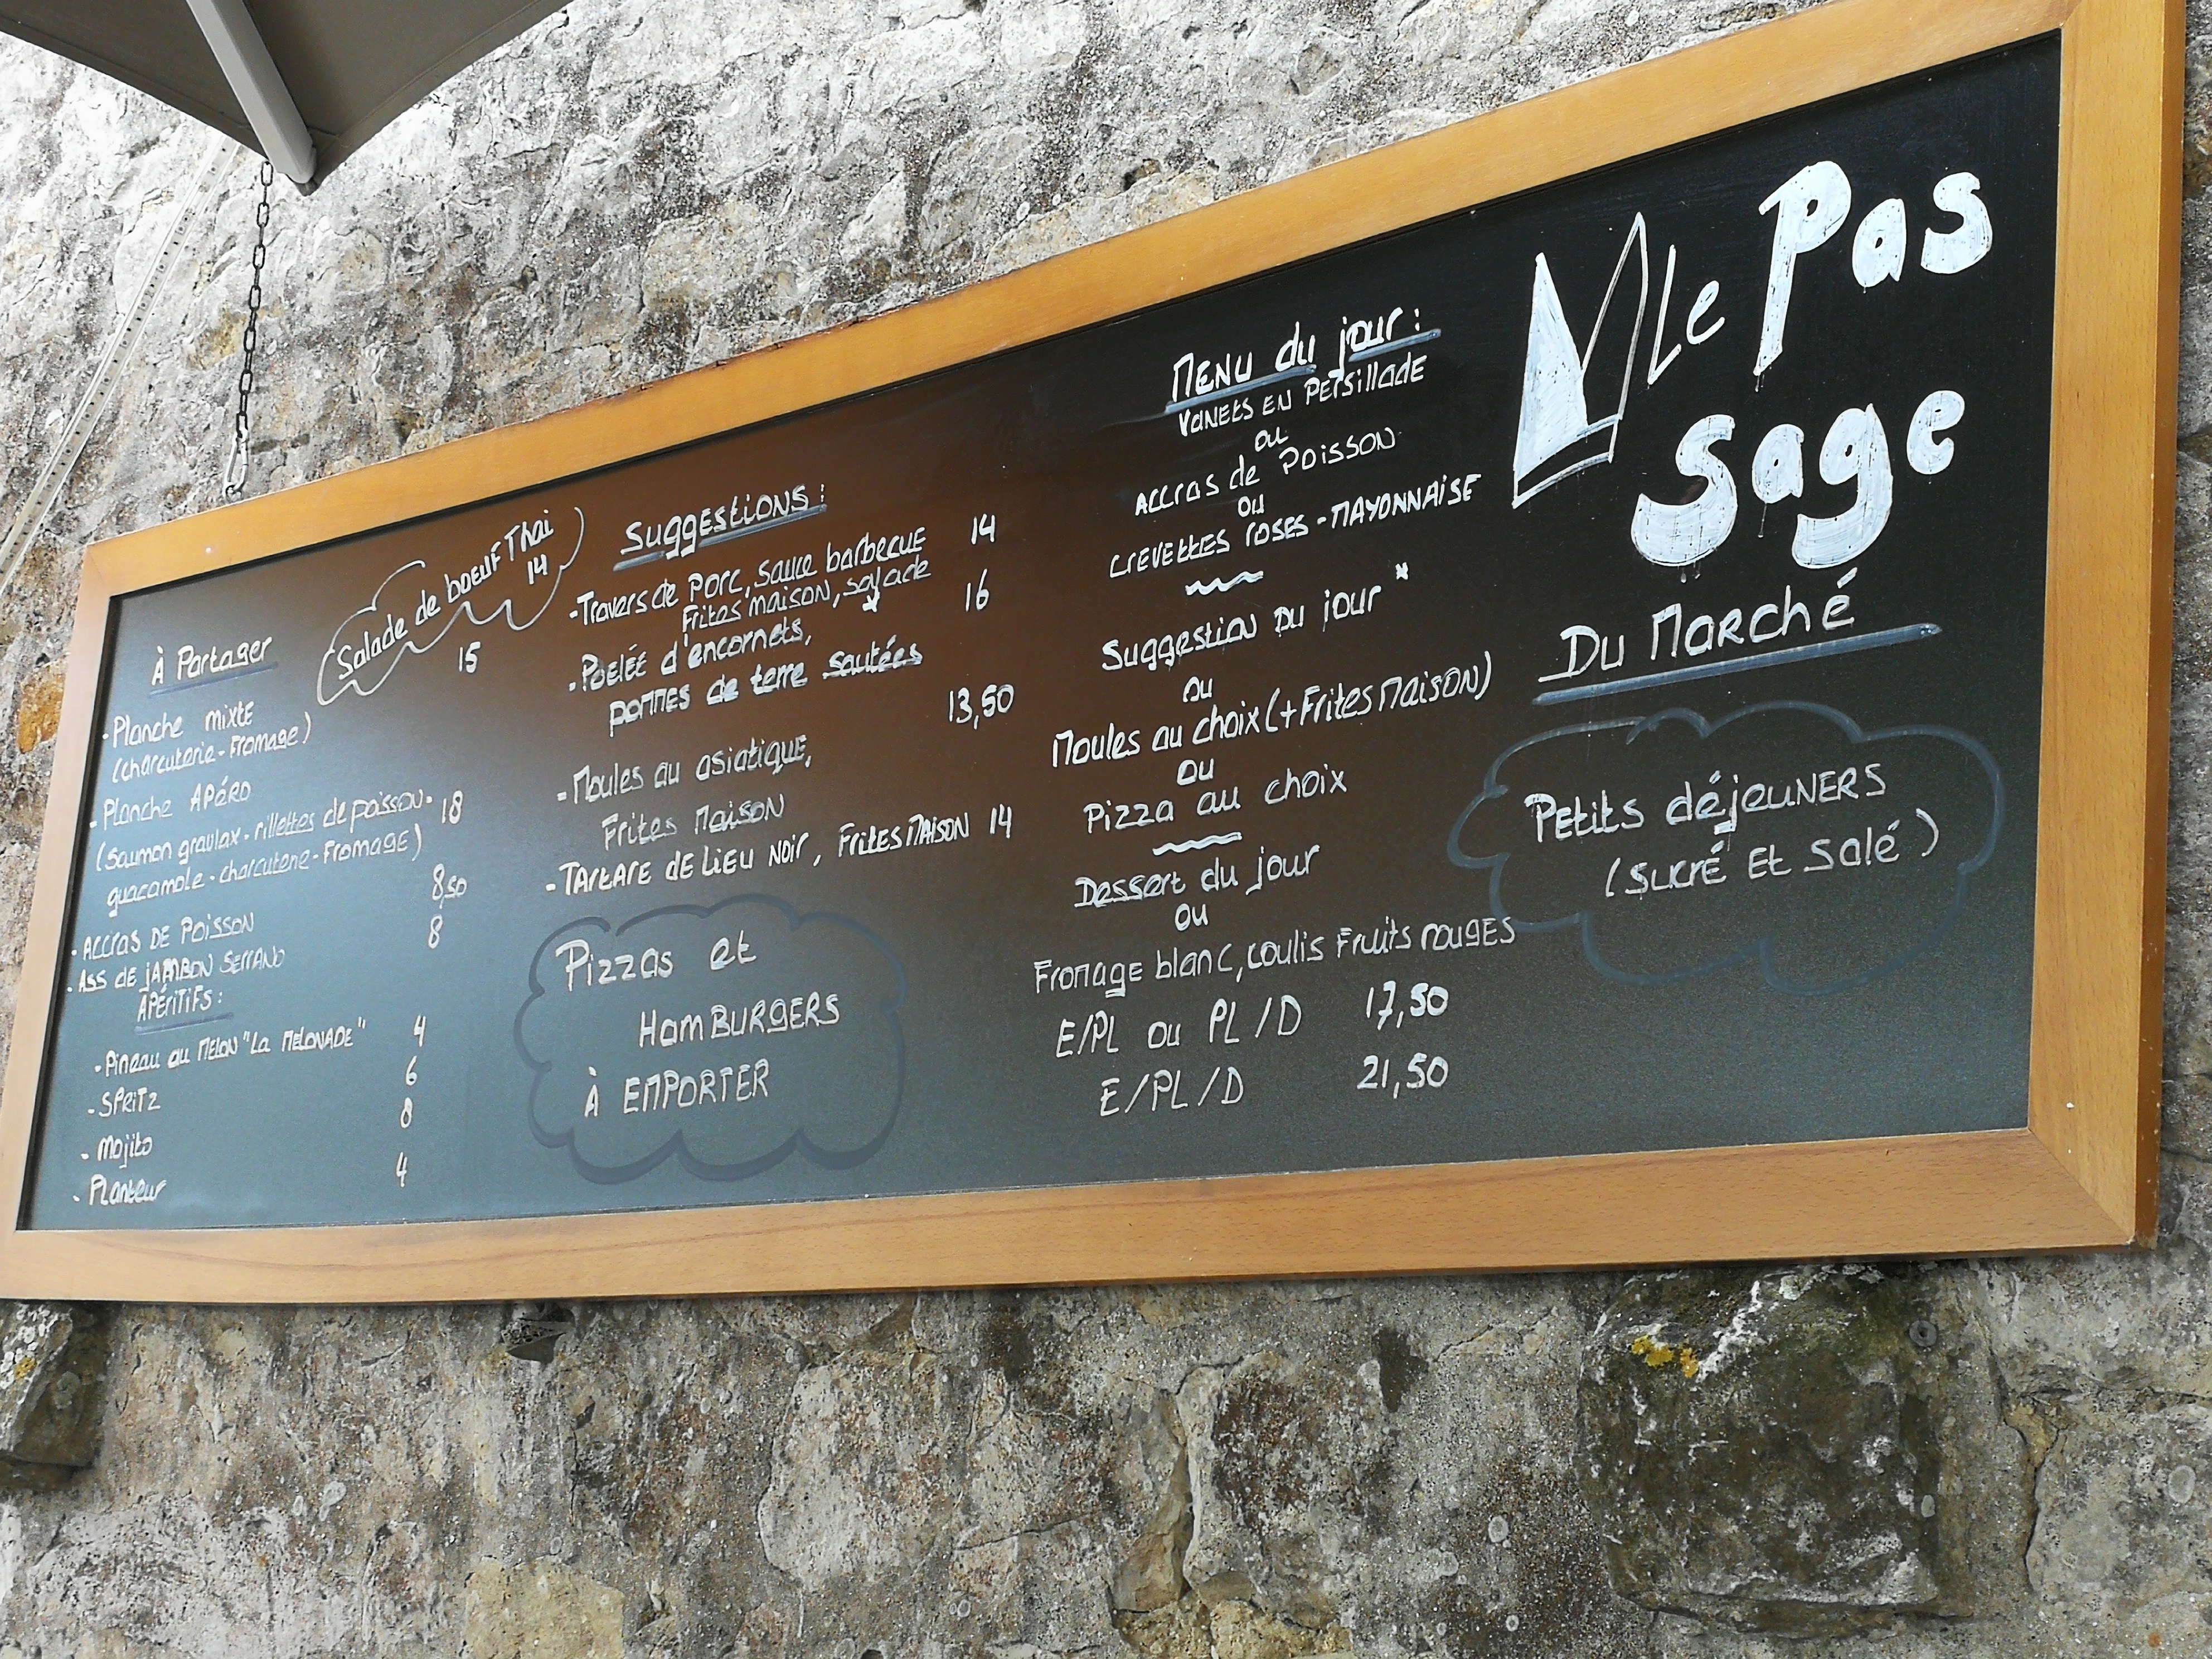 À Partager
15
- Planche mixte
(charcuterie - Fromage)
- Planche APéRO
(saumon gravlax - rillettes de poisson - 18
guacamole - charcuterie - Fromage)
8,50
- Accras DE POISSON
8
- Ass de JAMBON SERRANO
APÉRITIFS :
- Pineau au MELON "La MELONADE" 4
- SPRITZ 6
- Mojito 8
- Planteur 4
Salade de boeuf Thai
14
Suggestions :
- Travers de porc, sauce barbecue 14
Frites maison, salade
- Poelée d'encornets, 16
pommes de terre sautées
13,50
- Moules au asiatique,
Frites Maison
- TARTARE DE LIEU NOIR, FRITES MAISON 14
Pizzas et
HamBURGERS
À EMPORTER
MENU du jour :
VANETS EN PERSILLADE
ou
Accras de POISSON
ou
CREVETTES roses - MAYONNAISE
Suggestion DU jour *
ou
Moules au choix (+ Frites Maison)
ou
Pizza au choix
Dessert du jour
ou
Fromage blanc, coulis Fruits rouges
E/PL ou PL/D 17,50
E/PL/D 21,50
Le Pas
sage
Du Marché
Petits déjeuNERS
(SUCRÉ Et Salé)